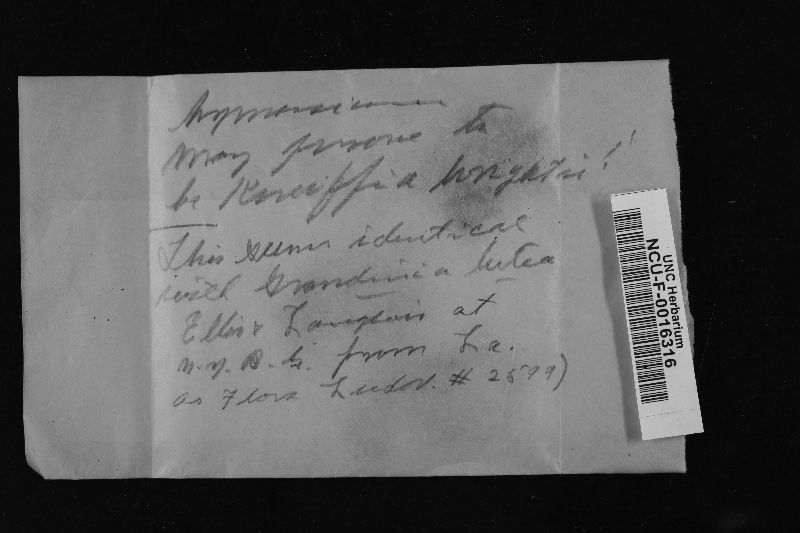 may prove to
be Kneiffia Wrightii!!
This seems identical
with Grandinia lutea
Ellis & Langlois at
N.Y.B.G. from La.
as Flora Ludov. # 2599)
UNC Herbarium
NCU-F-0016316